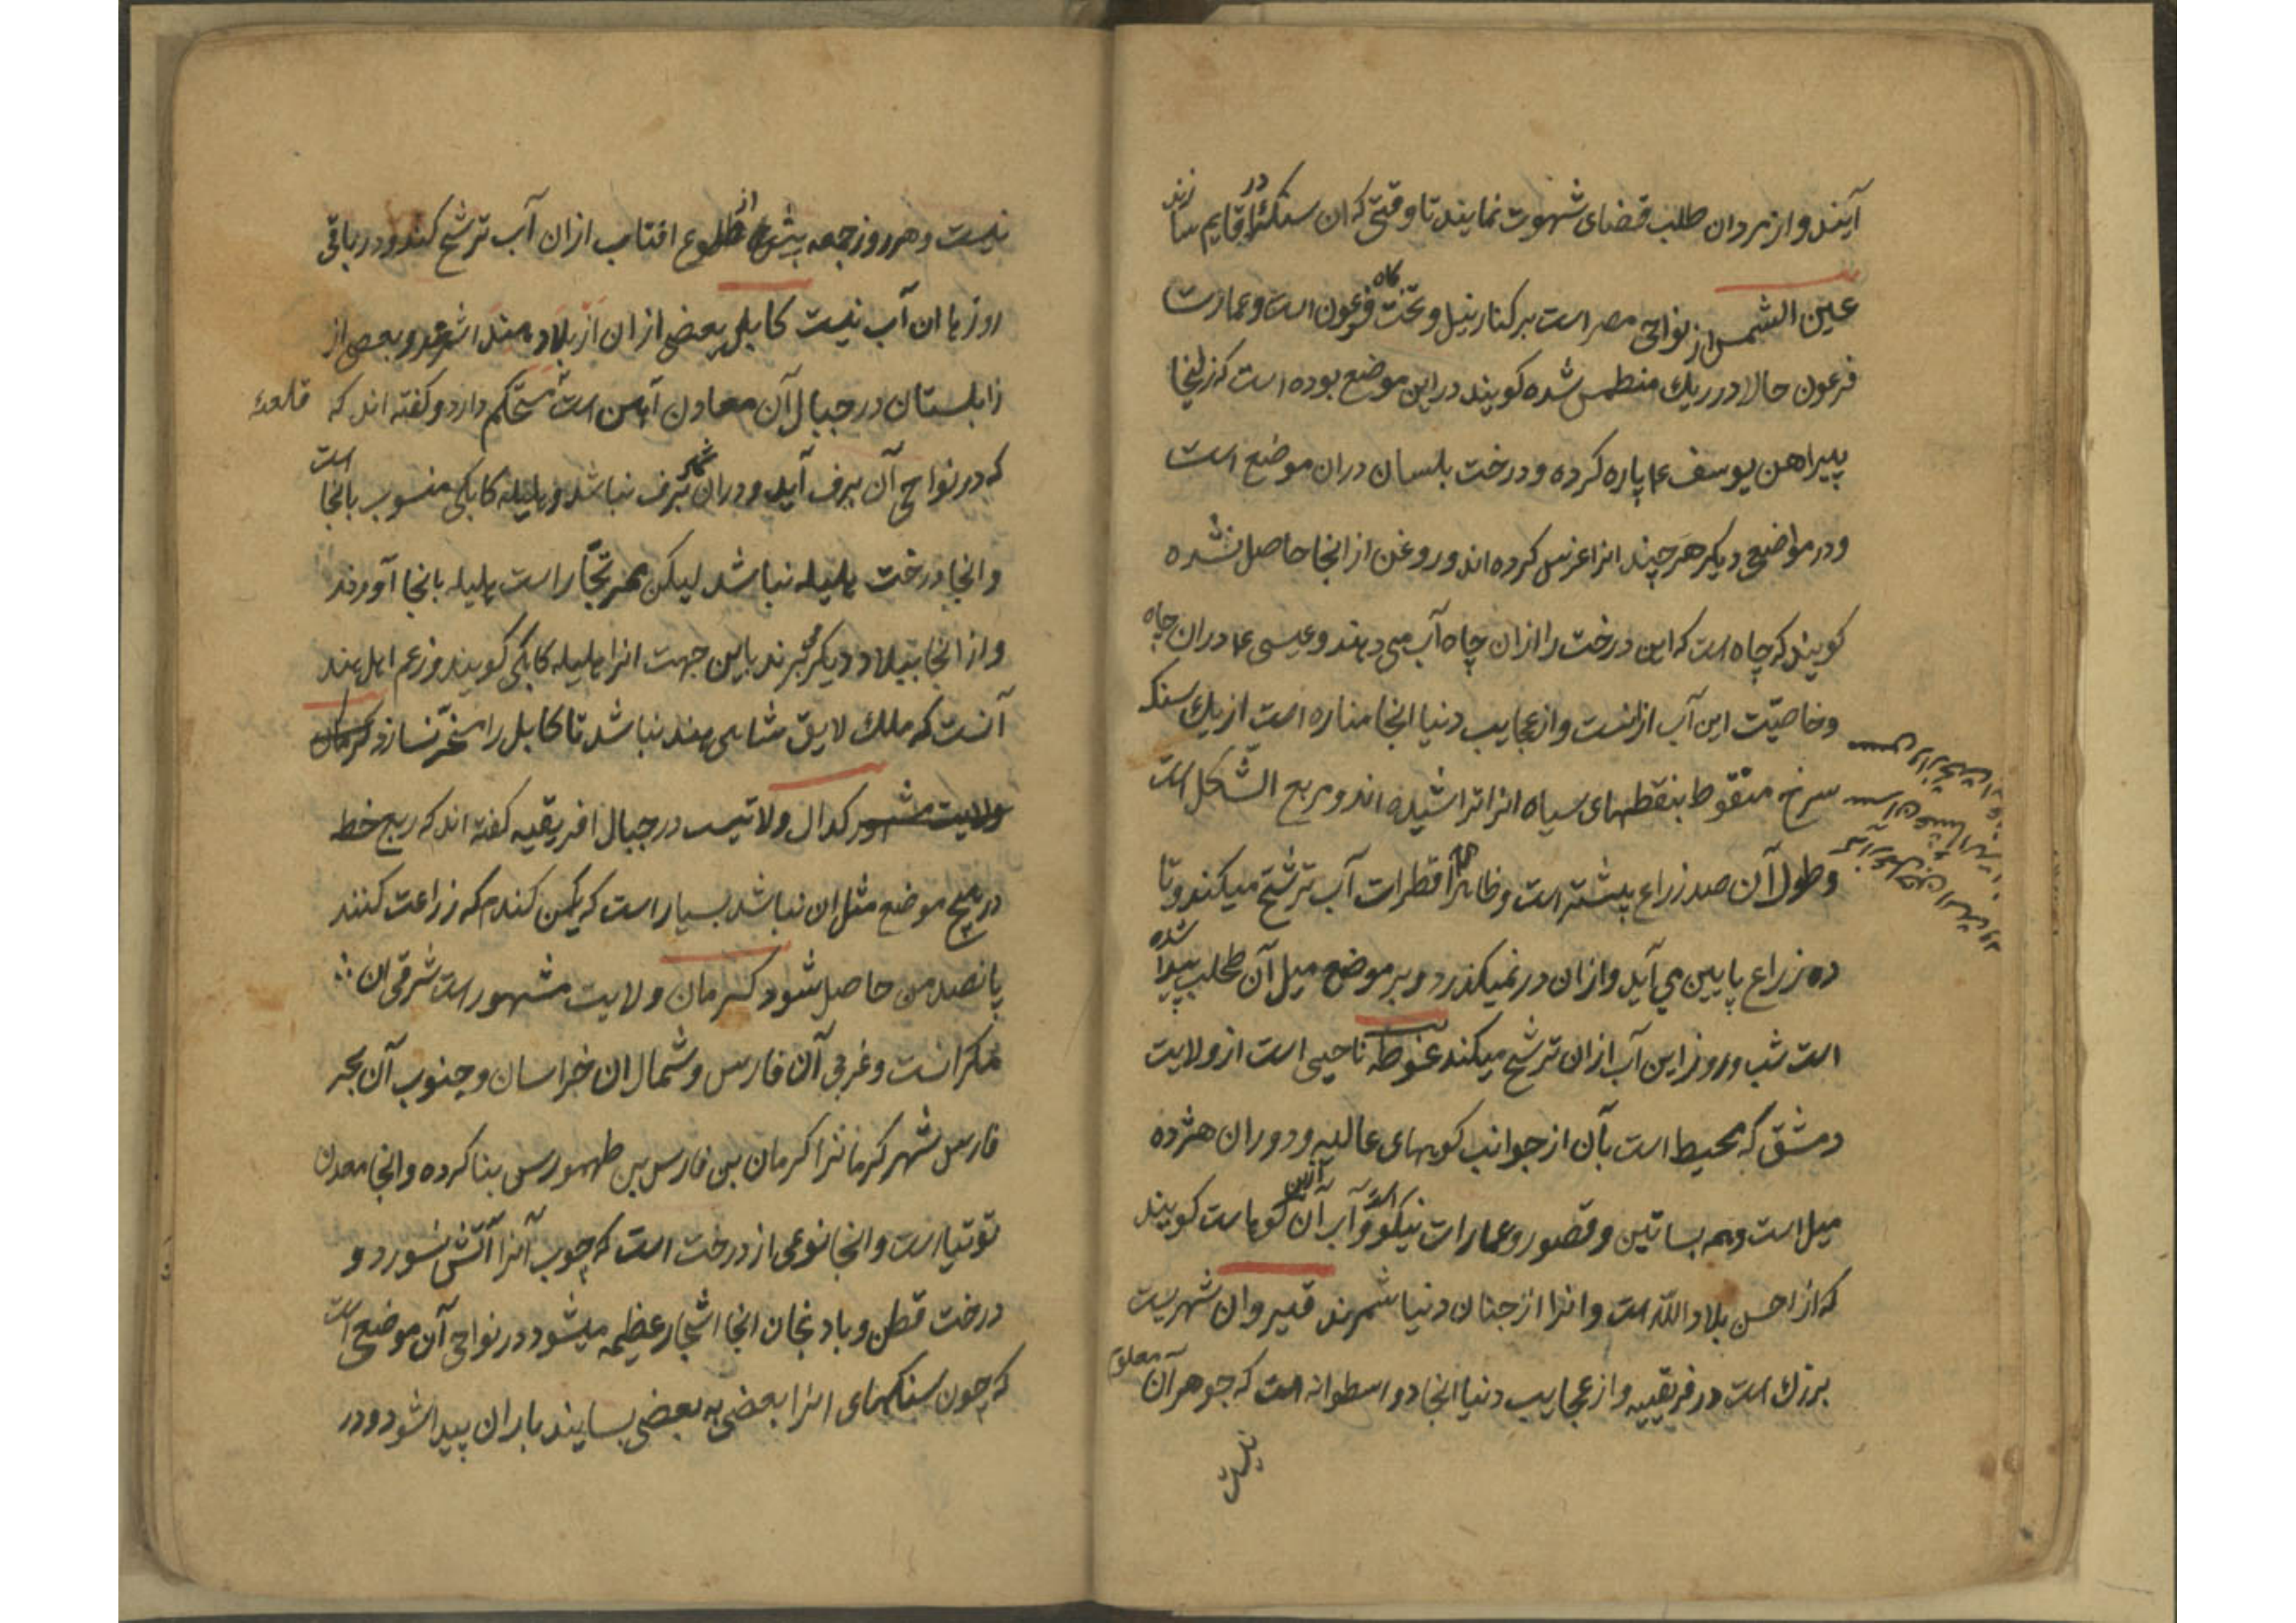 آیند و از مردان طلب قضای شهوت نمایند تا وقتی که ان سنک را در قایم سازند
عین الشمس از نواحی مصر است بر کنار نیل و تختکاه فرعون است و عمارت
فرعون حالا در ریک منطمس شده کویند در این موضع بوده است که زلیخا
پیراهن یوسف ع پاره کرده و درخت بلسان دران موضع است
و در مواضع دیکر هرچند انرا غرس کرده اند و روغن از انجا حاصل نشده
کویند که چاه است که این درخت را ازان چاه آب می دهند و عیسی ع دران چاه
و خاصیّت این آب ازانست و از عجایب دنیا انجا مناره است از یک سنک
سرخ منقوط بنقطهای سیاه انرا تراشیده اند و مربع الشکل است
و طول آن صد زراع بیشتر است و ظاهرا قطرات آب ترشّح میکند و تا
ده زراع پایین می آید و ازان در نمیکذرد و بر موضع میل آن طحلب پیدا شده
است شب و روز این آب ازان ترشح میکند غوطه ناحیی است از ولایت
دمشق که محیط است بآن از جوانب کوههای عالیه و دوران هژده
میل است و همه بساتین و قصور و عمارات نیکو است و آب آن ازین کوهاست کویند
که از احسن بلاد الله است و انرا از جنان دنیا شمرند قیروان شهریست
بزرک است در فریقیه و از عجایب دنیا انجا دو اسطوانه است که جوهر آن معلوم
نیست
نیست و هر روز جمعه پیش از طلوع افتاب ازان آب ترشّح کند و در باقی
روزها ان آب نیست کابل بعضی ازان از بلاد هند اشمرند و بعضی از
زابلستان در جبال آن معاون آهن است مستحکم دارد و کفته اند که
قلعهٔ
که در نواحی آن برف آید و دران شهر برف نباشد و هلیله کابلی منسوب بانجا است
و انجا درخت هلیله نباشد لیکن ممر تجّار است هلیله بانجا آورند
و از انجا ببلاد دیکر می برند باین جهت انرا هلیله کابلی کویند و زعم اهل هند
آنست که ملک لایق شاهی هند نباشد تا کابل را مسخّر نسازد کرمان
ولایت مشهور کدال ولاتیست در جبال افریقیه کفته اند که ربع خط
در هیچ موضع مثل ان نباشد بسیار است که یکمن کندم که زراعت کنند
پانصد من حاصل شود کرمان ولایت مشهور است شرقی ان
مکرانست و غربی آن فارس و شمال ان خراسان و جنوب آن بحر
فارس شهر کرمانرا کرمان بن فارس بن طهمورس بنا کرده و انجا معدن
توتیاست و انجا نوعی از درخت است که چوب آنرا آتش نسوزد و
درخت قطن و بادنجان انجا اشجار عظیمه میشود در نواحی آن موضعی است
که چون سنکهای انرا بعضی به بعضی بسایند باران پیدا شود و در